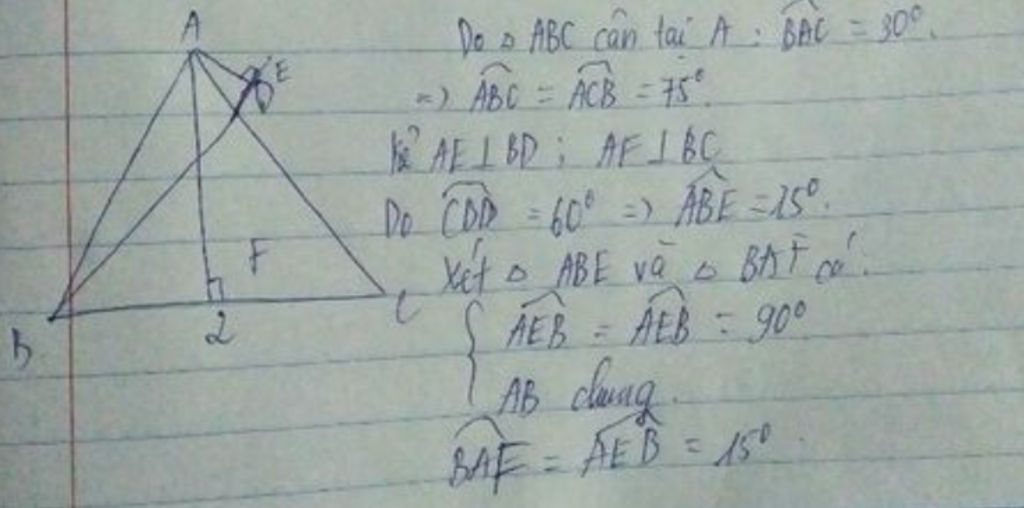 A
E
D
F
B
2
C
Do △ ABC cân tại A : \widehat{BAC} = 30°.
=) \widehat{ABC} = \widehat{ACB} = 75°.
Kẻ AE ⊥ BD ; AF ⊥ BC
Do \widehat{CBD} = 60° =) \widehat{ABE} = 15°.
Xét △ ABE và △ BAF có :
{ \widehat{AEB} = \widehat{AEB} = 90°
AB chung.
\widehat{BAF} = \widehat{AEB} = 15°.